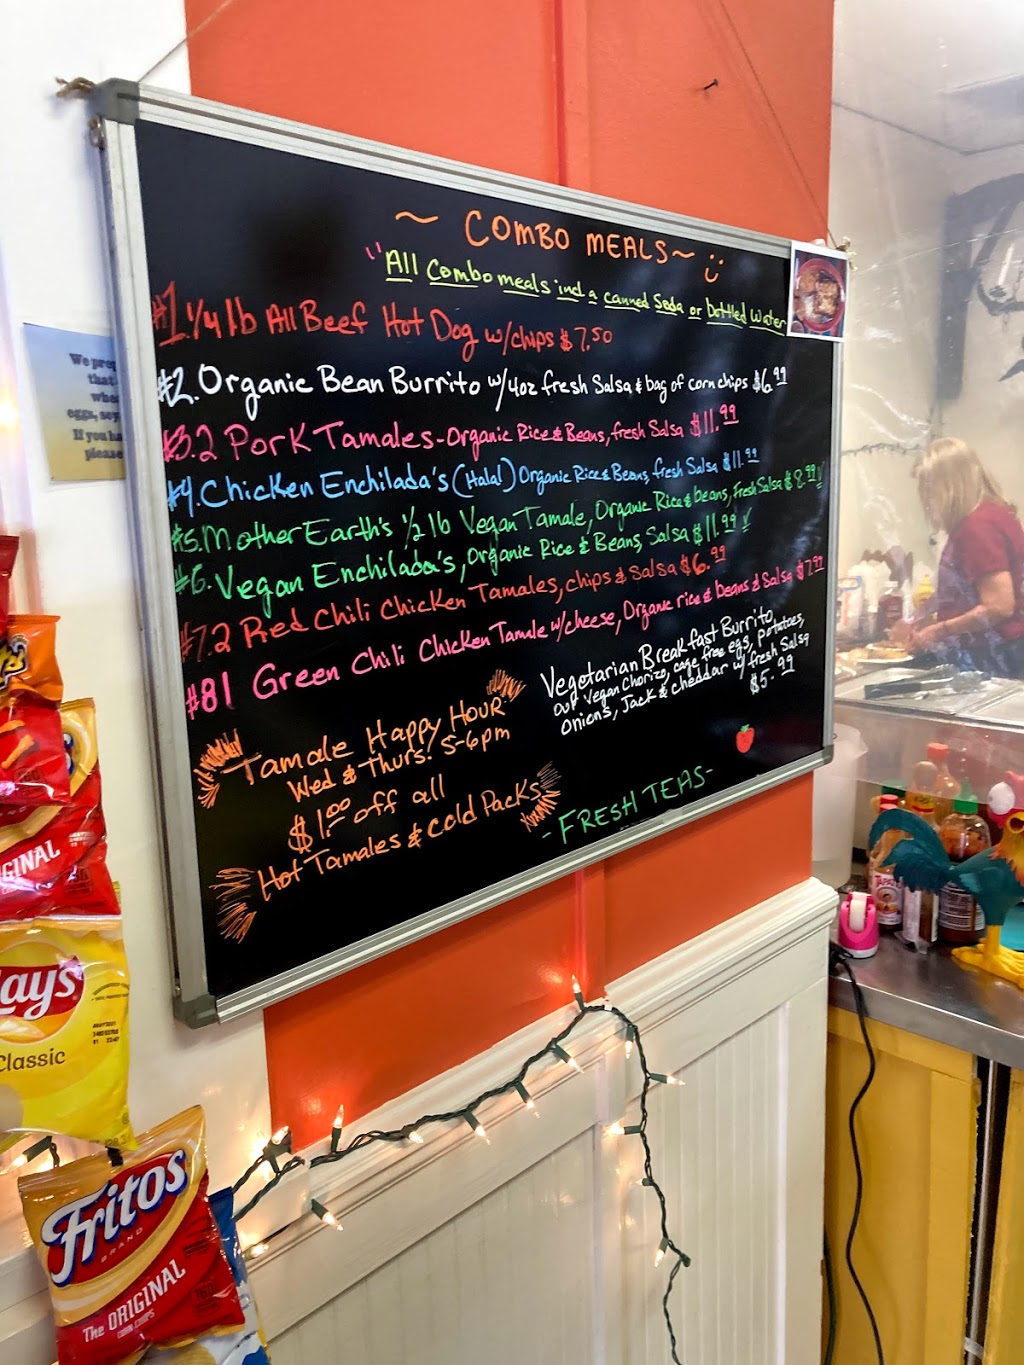 ~ COMBO MEALS ~
"All Combo meals incl a canned Soda or bottled Water
#1. 1/4 lb All Beef Hot Dog w/chips $7.50
#2. Organic Bean Burrito w/ 4oz fresh Salsa & bag of corn chips $6.99
#3. 2 Pork Tamales - Organic Rice & Beans, fresh Salsa $11.99
#4. Chicken Enchilada's (Halal) Organic Rice & Beans, fresh Salsa $11.99
#5. Mother Earth's 1/2 lb Vegan Tamale, Organic Rice & beans, Fresh Salsa $8.99 ✓
#6. Vegan Enchilada's, Organic Rice & Beans, Salsa $11.99 ✓
#7. 2 Red Chili Chicken Tamales, chips & Salsa $6.99
#8 1 Green Chili Chicken Tamale w/cheese, Organic rice & beans & Salsa $7.99
Vegetarian Breakfast Burrito
our Vegan Chorizo, cage free egs, potatoes,
Onions, Jack & cheddar w/ fresh Salsa
$5.99
Tamale Happy Hour
Wed & Thurs! 5-6pm
$1.00 off all
Hot Tamales & Cold Packs
- FRESH TEAS -
We prep
that
whe
eggs, soy
If you ha
please
INAL
Lays
Classic
Fritos
BRAND
The ORIGINAL
CORN CHIPS
TAPATIO